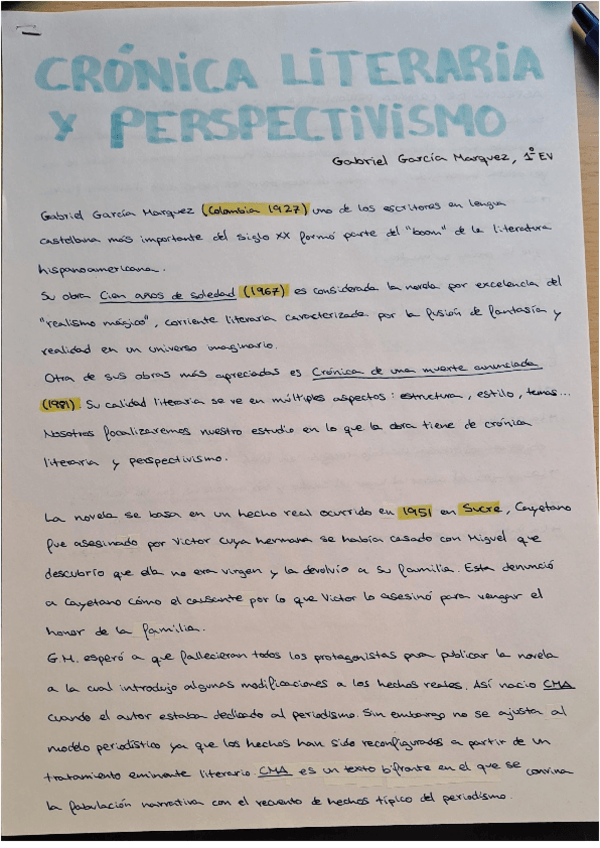 CRÓNICA LITERARIA
Y PERSPECTIVISMO
Gabriel García Marquez, 1º EV
Gabriel García Marquez (Colombia 1927) uno de los escritores en lengua
castellana más importante del siglo XX formó parte del "boom" de la literatura
hispanoamericana.
Su obra Cien años de soledad (1967) es considerada la novela por excelencia del
"realismo mágico", corriente literaria caracterizada por la fusión de fantasía y
realidad en un universo imaginario.
Otra de sus obras más apreciadas es Crónica de una muerte anunciada
(1981) Su calidad literaria se ve en múltiples aspectos: estructura, estilo, temas...
Nosotros focalizaremos nuestro estudio en lo que la obra tiene de crónica
literaria y perspectivismo.
La novela se basa en un hecho real ocurrido en 1951 en Sucre, Cayetano
fue asesinado por Victor cuya hermana se había casado con Miguel que
descubrío que ella no era virgen y la devolvío a su familia. Esta denunció
a Cayetano cómo el causante por lo que Victor lo asesinó para vengar el
honor de la familia.
G.M. esperó a que fallecieran todos los protagonistas para publicar la novela
a la cual introdujo algunas modificaciones a los hechos reales. Así nacio CMA
cuando el autor estaba dedicado al periodismo. Sin embargo no se ajusta al
modelo periodístico ya que los hechos han sido reconfigurados a partir de un
tratamiento eminente literario. CMA es un texto bifronte en el que se convina
la fabulación narrativa con el recuento de hechos típico del periodismo.